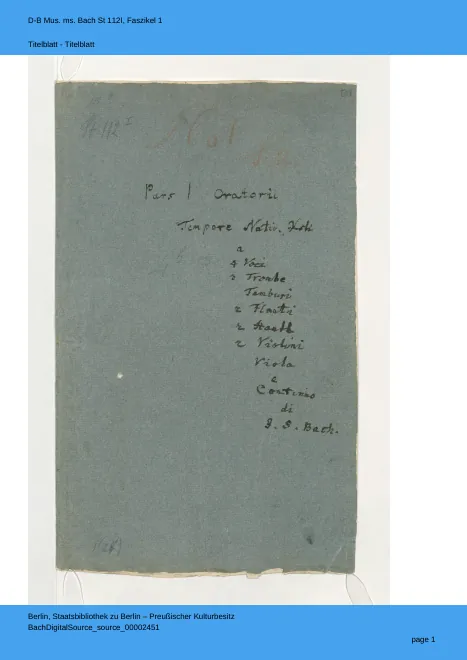 D-B Mus. ms. Bach St 112I, Faszikel 1
Titelblatt - Titelblatt
St. 112 I
Pars I Oratorii
Tempore Nativ. Xsti
a
4 Voci
Tamburi
2
2
2 Violini
Viola
e
Continuo
di
J. S. Bach.
Berlin, Staatsbibliothek zu Berlin – Preußischer Kulturbesitz
BachDigitalSource_source_00002451
page 1